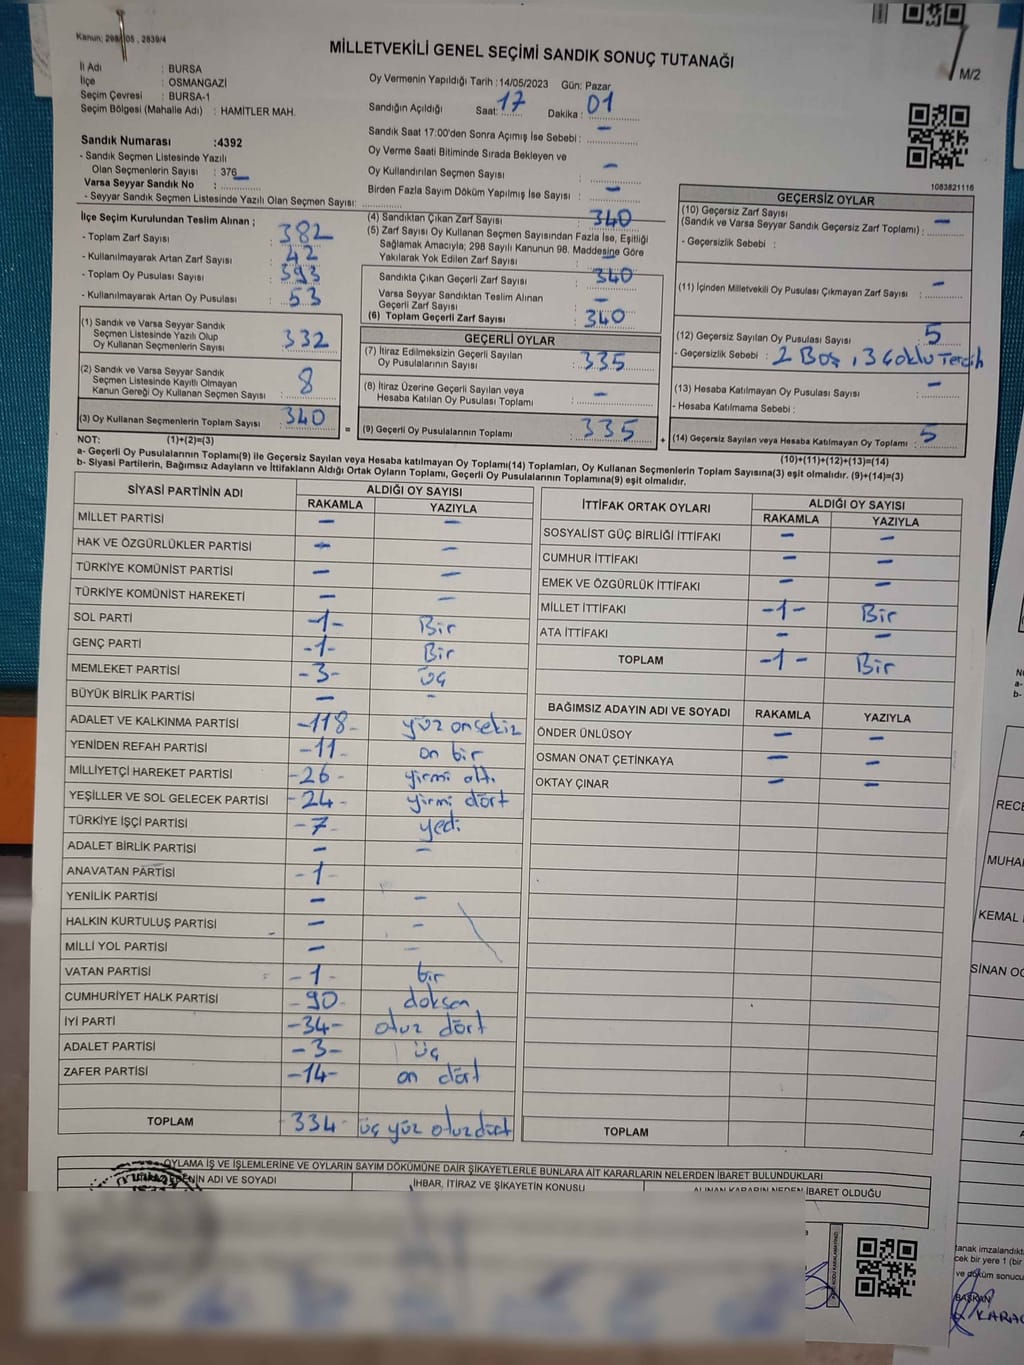 Kanun: 298/105 , 2839/4
MİLLETVEKİLİ GENEL SEÇİMİ SANDIK SONUÇ TUTANAĞI
M/2
İl Adı : BURSA
İlçe : OSMANGAZİ
Seçim Çevresi : BURSA-1
Seçim Bölgesi (Mahalle Adı) : HAMİTLER MAH.
Oy Vermenin Yapıldığı Tarih :14/05/2023 Gün: Pazar
Sandığın Açıldığı Saat: 17 Dakika : 01
Sandık Saat 17:00'den Sonra Açımış İse Sebebi : –
Oy Verme Saati Bitiminde Sırada Bekleyen ve
Oy Kullandırılan Seçmen Sayısı : –
Birden Fazla Sayım Döküm Yapılmış İse Sayısı : –
Sandık Numarası :4392
- Sandık Seçmen Listesinde Yazılı
Olan Seçmenlerin Sayısı : 376
Varsa Seyyar Sandık No :
- Seyyar Sandık Seçmen Listesinde Yazılı Olan Seçmen Sayısı:
1083821116
İlçe Seçim Kurulundan Teslim Alınan ;
- Toplam Zarf Sayısı : 382
- Kullanılmayarak Artan Zarf Sayısı : 42
- Toplam Oy Pusulası Sayısı : 393
- Kullanılmayarak Artan Oy Pusulası : 53
(1) Sandık ve Varsa Seyyar Sandık
Seçmen Listesinde Yazılı Olup
Oy Kullanan Seçmenlerin Sayısı : 332
(2) Sandık ve Varsa Seyyar Sandık
Seçmen Listesinde Kayıtlı Olmayan
Kanun Gereği Oy Kullanan Seçmen Sayısı : 8
(3) Oy Kullanan Seçmenlerin Toplam Sayısı : 340
(4) Sandıktan Çıkan Zarf Sayısı : 340
(5) Zarf Sayısı Oy Kullanan Seçmen Sayısından Fazla İse, Eşitliği
Sağlamak Amacıyla; 298 Sayılı Kanunun 98. Maddesine Göre
Yakılarak Yok Edilen Zarf Sayısı : –
Sandıkta Çıkan Geçerli Zarf Sayısı : 340
Varsa Seyyar Sandıktan Teslim Alınan
Geçerli Zarf Sayısı : –
(6) Toplam Geçerli Zarf Sayısı : 340
GEÇERLİ OYLAR
(7) İtiraz Edilmeksizin Geçerli Sayılan
Oy Pusulalarının Sayısı : 335
(8) İtiraz Üzerine Geçerli Sayılan veya
Hesaba Katılan Oy Pusulası Toplamı : –
= (9) Geçerli Oy Pusulalarının Toplamı : 335
GEÇERSİZ OYLAR
(10) Geçersiz Zarf Sayısı
(Sandık ve Varsa Seyyar Sandık Geçersiz Zarf Toplamı) : –
- Geçersizlik Sebebi :
(11) İçinden Milletvekili Oy Pusulası Çıkmayan Zarf Sayısı : –
(12) Geçersiz Sayılan Oy Pusulası Sayısı : 5
- Geçersizlik Sebebi : 2 Boş , 3 Çoklu Tercih
(13) Hesaba Katılmayan Oy Pusulası Sayısı : –
- Hesaba Katılmama Sebebi :
+ (14) Geçersiz Sayılan veya Hesaba Katılmayan Oy Toplamı : 5
NOT: (1)+(2)=(3)
(10)+(11)+(12)+(13)=(14)
a- Geçerli Oy Pusulalarının Toplamı(9) ile Geçersiz Sayılan veya Hesaba katılmayan Oy Toplamı(14) Toplamları, Oy Kullanan Seçmenlerin Toplam Sayısına(3) eşit olmalıdır. (9)+(14)=(3)
b- Siyasi Partilerin, Bağımsız Adayların ve İttifakların Aldığı Ortak Oyların Toplamı, Geçerli Oy Pusulalarının Toplamına(9) eşit olmalıdır.
SİYASİ PARTİNİN ADI ALDIĞI OY SAYISI
RAKAMLA YAZIYLA
MİLLET PARTİSİ – –
HAK VE ÖZGÜRLÜKLER PARTİSİ – –
TÜRKİYE KOMÜNİST PARTİSİ – –
TÜRKİYE KOMÜNİST HAREKETİ – –
SOL PARTİ -1- Bir
GENÇ PARTİ -1- Bir
MEMLEKET PARTİSİ -3- üç
BÜYÜK BİRLİK PARTİSİ – –
ADALET VE KALKINMA PARTİSİ -118- yüz onsekiz
YENİDEN REFAH PARTİSİ -11- on bir
MİLLİYETÇİ HAREKET PARTİSİ -26- yirmi altı
YEŞİLLER VE SOL GELECEK PARTİSİ -24- yirmi dört
TÜRKİYE İŞÇİ PARTİSİ -7- yedi
ADALET BİRLİK PARTİSİ – –
ANAVATAN PARTİSİ -1-
YENİLİK PARTİSİ – –
HALKIN KURTULUŞ PARTİSİ – –
MİLLİ YOL PARTİSİ – –
VATAN PARTİSİ -1- bir
CUMHURİYET HALK PARTİSİ -90- doksan
İYİ PARTİ -34- otuz dört
ADALET PARTİSİ -3- üç
ZAFER PARTİSİ -14- on dört
TOPLAM -334- üç yüz otuzdört
İTTİFAK ORTAK OYLARI ALDIĞI OY SAYISI
RAKAMLA YAZIYLA
SOSYALİST GÜÇ BİRLİĞİ İTTİFAKI – –
CUMHUR İTTİFAKI – –
EMEK VE ÖZGÜRLÜK İTTİFAKI – –
MİLLET İTTİFAKI -1- Bir
ATA İTTİFAKI – –
TOPLAM -1- Bir
BAĞIMSIZ ADAYIN ADI VE SOYADI RAKAMLA YAZIYLA
ÖNDER ÜNLÜSOY – –
OSMAN ONAT ÇETİNKAYA – –
OKTAY ÇINAR – –
TOPLAM
OYLAMA İŞ VE İŞLEMLERİNE VE OYLARIN SAYIM DÖKÜMÜNE DAİR ŞİKAYETLERLE BUNLARA AİT KARARLARIN NELERDEN İBARET BULUNDUKLARI
ADI VE SOYADI İHBAR, İTİRAZ VE ŞİKAYETİN KONUSU ALINAN KARARIN NEDEN İBARET OLDUĞU
RECE
MUHA
KEMAL
SİNAN OĞ
tanak imzalandıkt
cek bir yere 1 (bir
ve döküm sonucu
BAŞKAN
KARAC